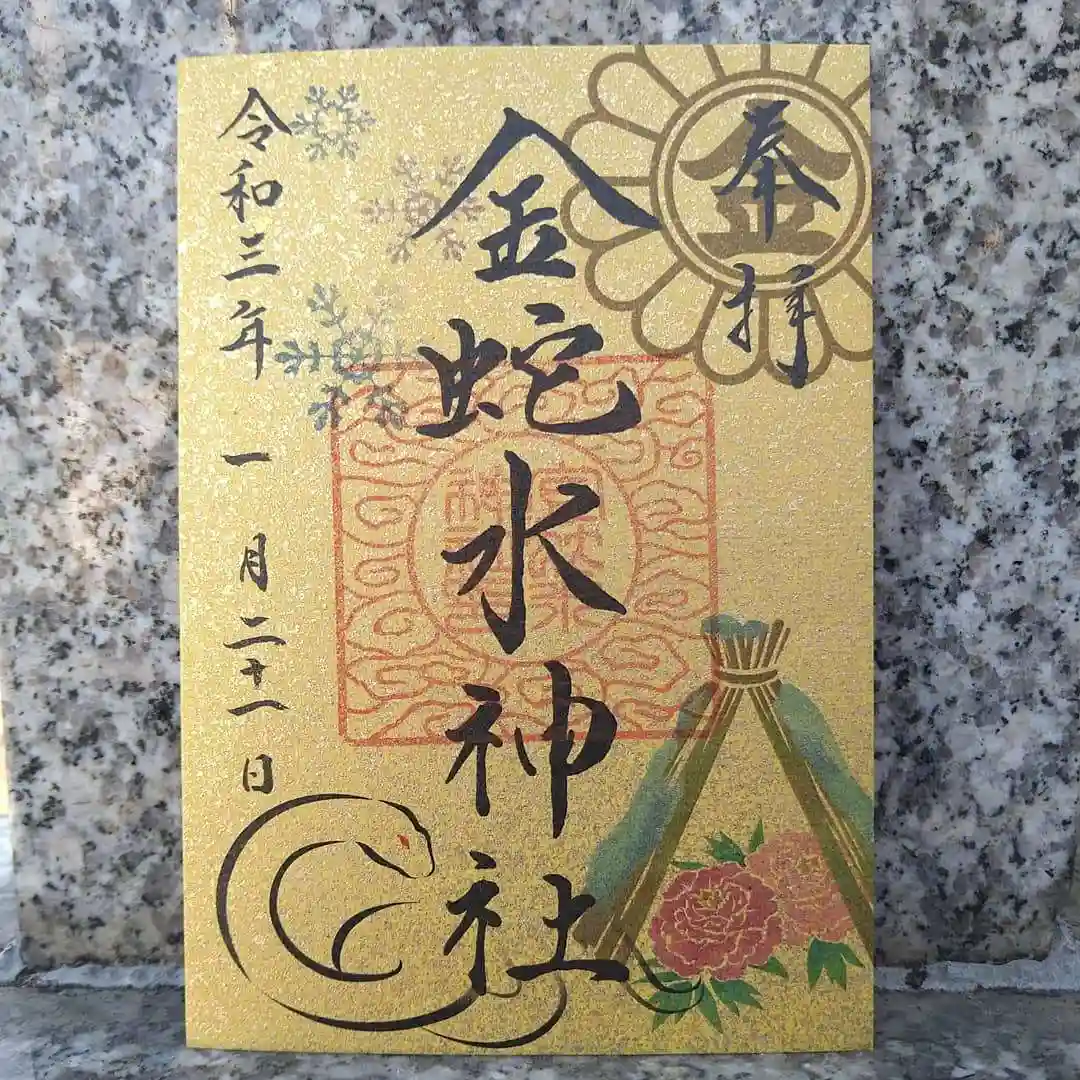 奉拝
金
金蛇水神社
令和三年一月二十一日